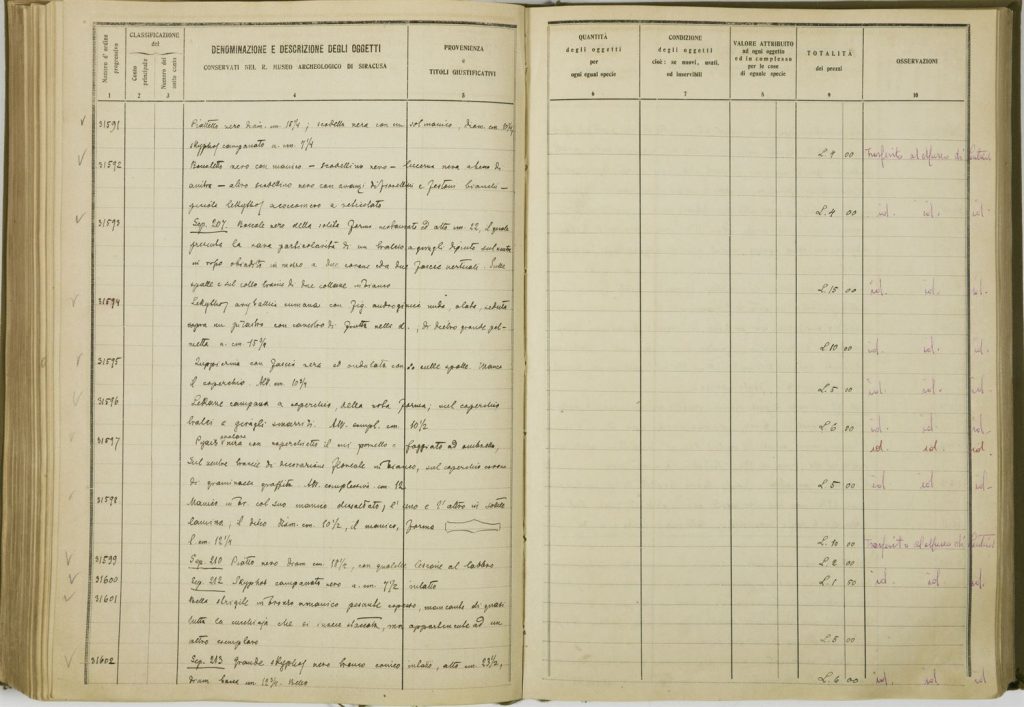 Numero d'ordine progressivo
CLASSIFICAZIONE
del
Conto principale
Numero del sotto conto
DENOMINAZIONE E DESCRIZIONE DEGLI OGGETTI
CONSERVATI NEL R. MUSEO ARCHEOLOGICO DI SIRACUSA
PROVENIENZA
e
TITOLI GIUSTIFICATIVI
QUANTITÀ
degli oggetti
per
ogni egual specie
CONDIZIONE
degli oggetti
cioè: se nuovi, usati,
od inservibili
VALORE ATTRIBUITO
ad ogni oggetto
ed in complesso
per le cose
di eguale specie
TOTALITÀ
dei prezzi
OSSERVAZIONI
1 2 3 4 5 6 7 8 9 10
31591 Piattello nero diam. cm. 15 1/4; scodella nera con un sol manico, diam. cm.
skyphos campanato a. cm. 7 1/4 L. 9 00 Trasferito al Museo di
31592 Boccaletto nero con manico – scodellino nero – lucerna nera
– altro scodellino nero con avanzi di e festoni bianchi –
lekythos a reticolato L. 4 00 id. id. id.
31593 Sep. 207. Boccale nero della solita forma ed alto cm. 22, il quale
presenta la rara particolarità di un dipinto sul ventre
in rosso in mezzo a due corone ed a due fascie verticali. Sulle
spalle e sul collo di due collane in bianco L. 15 00 id. id. id.
31594 Lekythos con fig. nuda, alata, seduta
sopra un pilastro con canestro di frutta nella d., di dietro grande pal-
metta a. cm. 15 3/4 L. 10 00 id. id. id.
31595 con fascia nera ed ondulata sulle spalle. Manca
il coperchio. Alt. cm. 10 L. 5 00 id. id. id.
31596 Lekane campana a coperchio, della solita forma; sul coperchio
smarriti. Alt. compl. cm. 10 1/2 L. 6 00 id. id. id.
31597 nera con coperchietto il cui pomello è foggiato ad ombrello, id. id. id.
Sul ventre traccie di decorazione floreale in bianco, sul coperchio corona
di graffita. Alt. complessiva cm. 12 L. 5 00 id id id.
31598 Manico in br. col suo manico dissaldato; l'uno e l'altro in sottile
lamina; il disco diam. cm. 10 1/2, il manico, forma
l. cm. 12 1/4 L. 10 00 Trasferito al Museo di
31599 Sep. 210 Piatto nero diam cm. 18 1/2, con qualche lesione al labbro L. 2 00
31600 Sep. 212 Skyphos campanato nero a. cm. 7 1/2 intatto L. 1 50 id. id id.
31601 Bello strigile in bronzo manico pesante , mancante di quasi
tutta la che si invece staccata, ma appartenente ad un
altro esemplare L. 5 00
31602 Sep. 213 Grande skyphos nero tronco conico intatto, alto cm. 23 1/2,
diam base cm. 12 3/4. Bello L. 6 00 id. id id